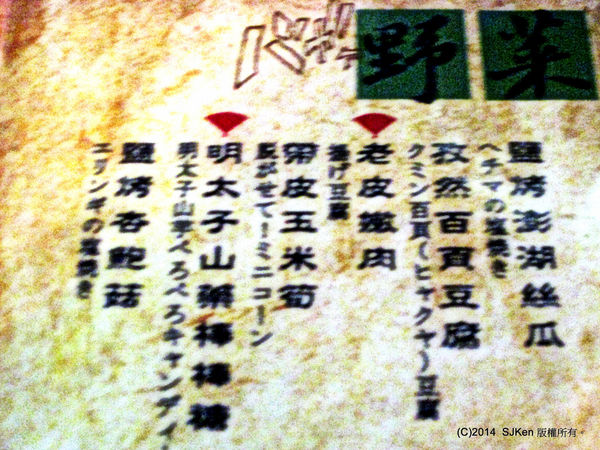 野菜
鹽烤澎湖絲瓜
ヘチマの塩焼き
孜然百頁豆腐
クミン百頁(ヒャクヤ)豆腐
老皮嫩肉
揚げ豆腐
帶皮玉米筍
脱がせて!ミニコーン
明太子山藥棒棒糖
明太子山芋ぺろぺろキャンディー
鹽烤杏鮑菇
エリンギの塩焼き
(C)2014 SJKen 版權所有。